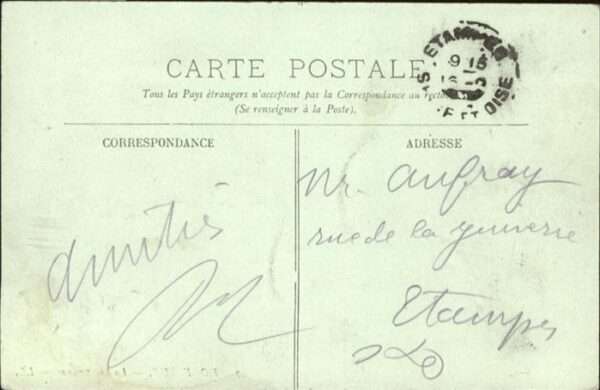 ETAMPES
9 15
16-5
SEINE ET OISE
CARTE POSTALE
Tous les Pays étrangers n'acceptent pas la Correspondance au recto
(Se renseigner à la Poste).
CORRESPONDANCE
ADRESSE
amitiés
Mr. Aufray
rue de la
Etampes
S&O